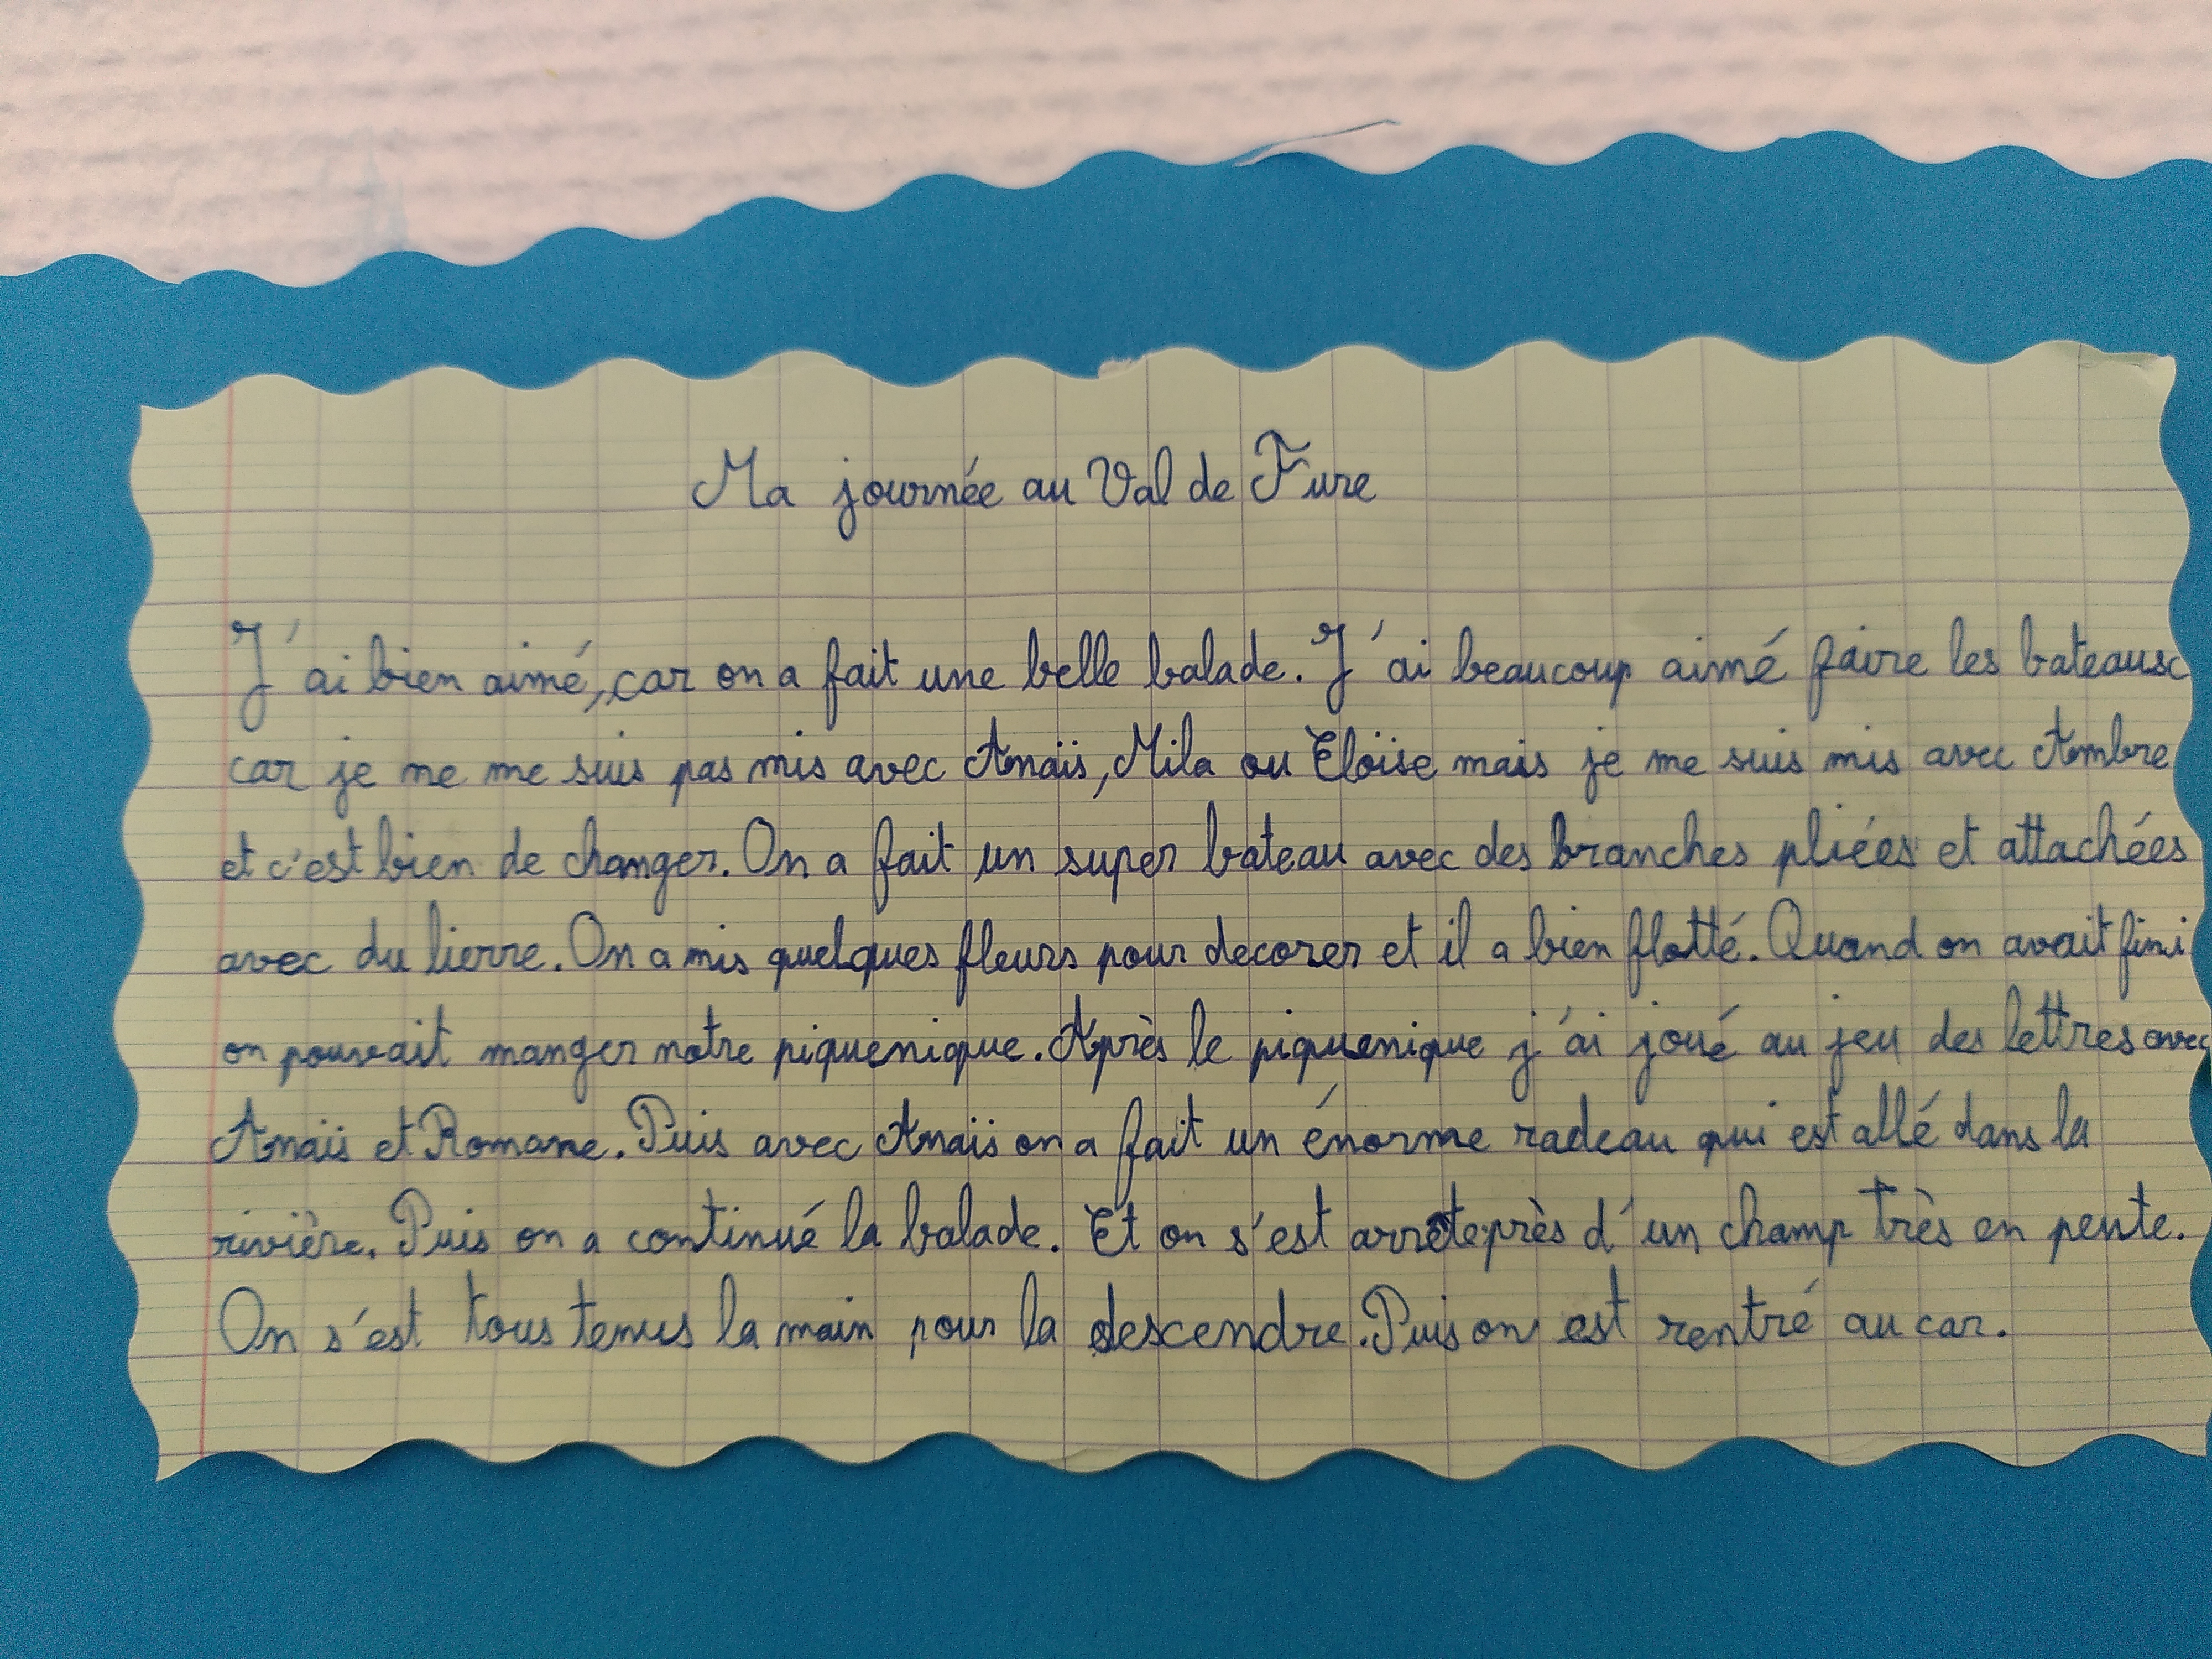 Ma journée au Val de Fure
J'ai bien aimé, car on a fait une belle balade. J'ai beaucoup aimé faire les bateaux
car je ne me suis pas mis avec Anaïs, Mila ou Eloïse mais je me suis mis avec Ambre
et c'est bien de changer. On a fait un super bateau avec des branches pliées et attachées
avec du lierre. On a mis quelques fleurs pour decorer et il a bien flotté. Quand on avait fini
on pouvait manger notre piquenique. Après le piquenique j'ai joué au jeu des lettres avec
Anaïs et Romane. Puis avec Anaïs on a fait un énorme radeau qui est allé dans la
rivière. Puis on a continué la balade. Et on s'est arrete près d'un champ très en pente.
On s'est tous tenus la main pour la descendre. Puis on est rentré au car.